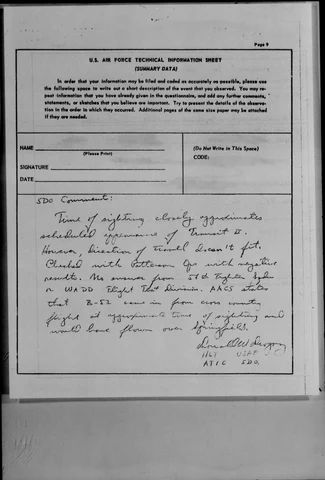 Page 8
U.S. AIR FORCE TECHNICAL INFORMATION SHEET
(SUMMARY DATA)
In order that your information may be filed and coded as accurately as possible, please use
the following space to write out a short description of the event that you observed. You may re-
peat information that you have already given in the questionnaire, and add any further comments,
statements, or sketches that you believe are important. Try to present the details of the observa-
tion in the order in which they occurred. Additional pages of the same size paper may be attached
if they are needed.
NAME
(Please Print)
SIGNATURE
DATE
(Do Not Write in This Space)
CODE:
SDO Comment:
Time of sighting closely approximates
scheduled appearance of Transit II.
However, direction of travel doesn't fit.
Checked with Patterson Ops with negative
results. No answer from 58th Fighter
or WADD Flight Test Division. AACS states
that B-52 came in from cross country
flight at approximate time of sighting and
would have flown over Springfield.
USAF
ATIC SDO